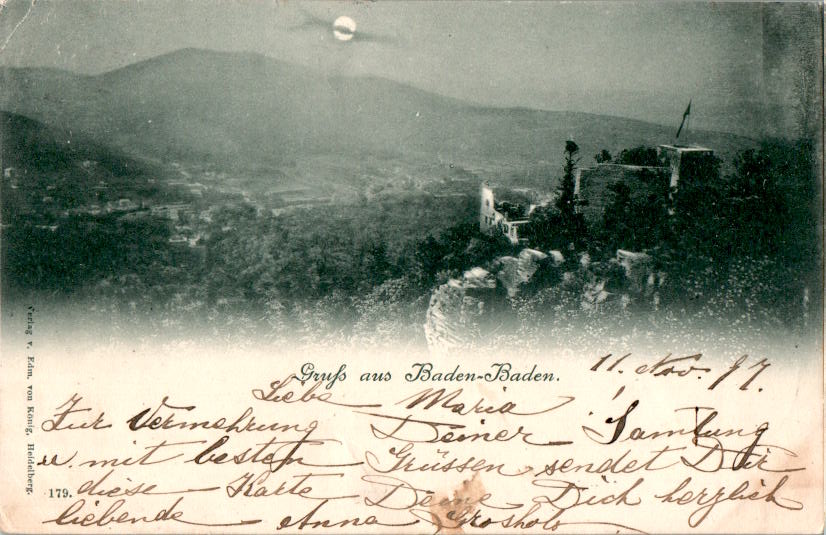 Gruß aus Baden-Baden.
11. Nov. 97.
Liebe Maria!
Zur Vermehrung Deiner Samlung
u. mit besten Grüssen sendet Dir
diese Karte Deine Dich herzlich
liebende Anna
179.
Verlag v. Edm. von König, Heidelberg.